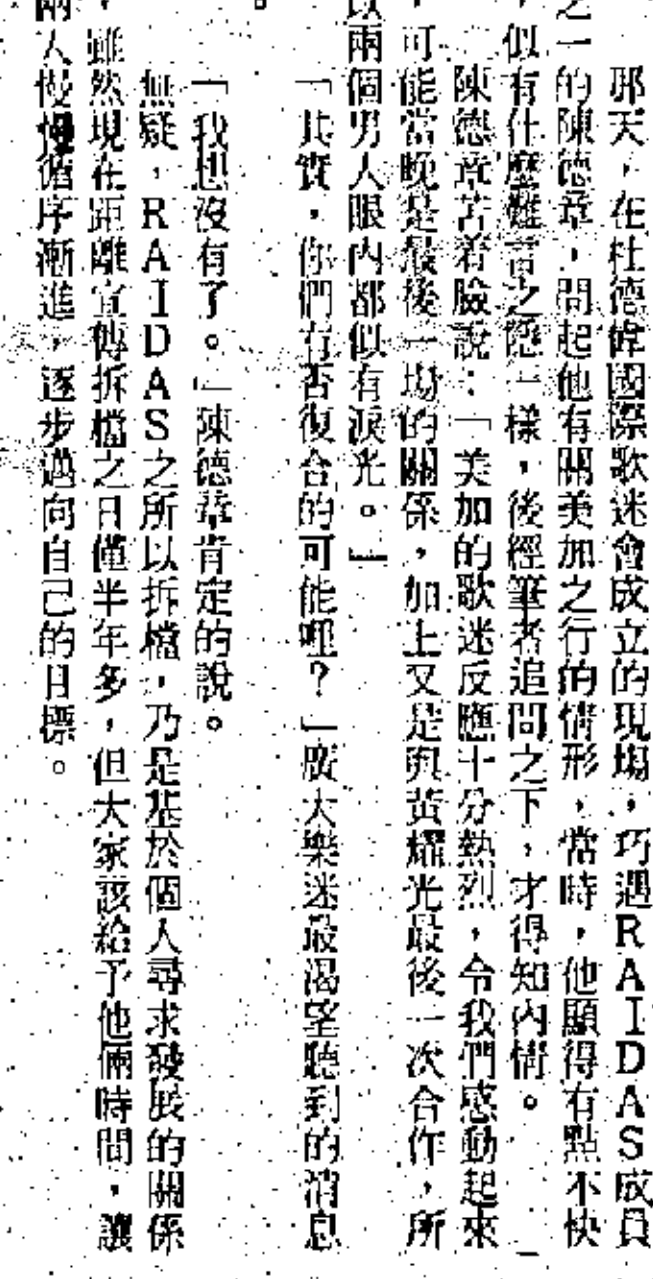 那天，在杜德偉國際歌迷會成立的現場，巧遇RAIDAS成員
之一的陳德章，問起他有關美加之行的情形，當時，他顯得有點不快
，似有什麼難言之隱一樣，後經筆者追問之下，才得知內情。
陳德章苦着臉說：「美加的歌迷反應十分熱烈，令我們感動起來
，可能當晚是最後一場的關係，加上又是與黃耀光最後一次合作，所
以兩個男人眼內都似有淚光。」
「其實，你們有否復合的可能哩？」廣大樂迷最渴望聽到的消息
。
「我想沒有了。」陳德章肯定的說。
無疑，RAIDAS之所以拆檔，乃是基於個人尋求發展的關係
，雖然現在距離宣傳拆檔之日僅半年多，但大家該給予他倆時間，讓
兩人慢慢循序漸進，逐步邁向自己的目標。